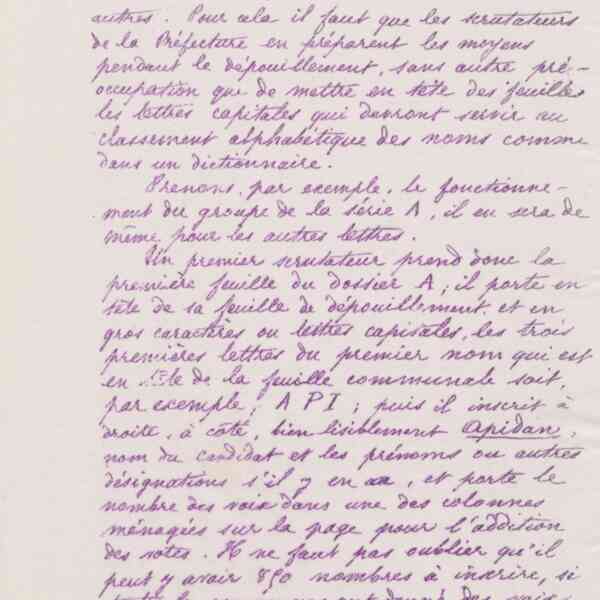 autres. Pour cela il faut que les scrutateurs
de la Préfecture en préparent les moyens
pendant le dépouillement, sans autre pré-
occupation que de mettre en tête des feuilles
les lettres capitales qui devront servir au
classement alphabétique des noms comme
dans un dictionnaire.
Prenons, par exemple, le fonctionne-
ment du groupe de la série A, il en sera de
même pour les autres lettres.
Un premier scrutateur prend donc la
première feuille du dossier A; il porte en
tête de sa feuille de dépouillement et en
gros caractères ou lettres capitales, les trois
premières lettres du premier nom qui est
en tête de la feuille communale soit,
par exemple, A P I; puis il inscrit à
droite, à côté, bien lisiblement Apidan,
nom du candidat et les prénoms ou autres
désignations s'il y en a, et porte le
nombre des voix dans une des colonnes
ménagées sur la page pour l'addition
des votes. Il ne faut pas oublier qu'il
peut y avoir 850 nombres à inscrire, si